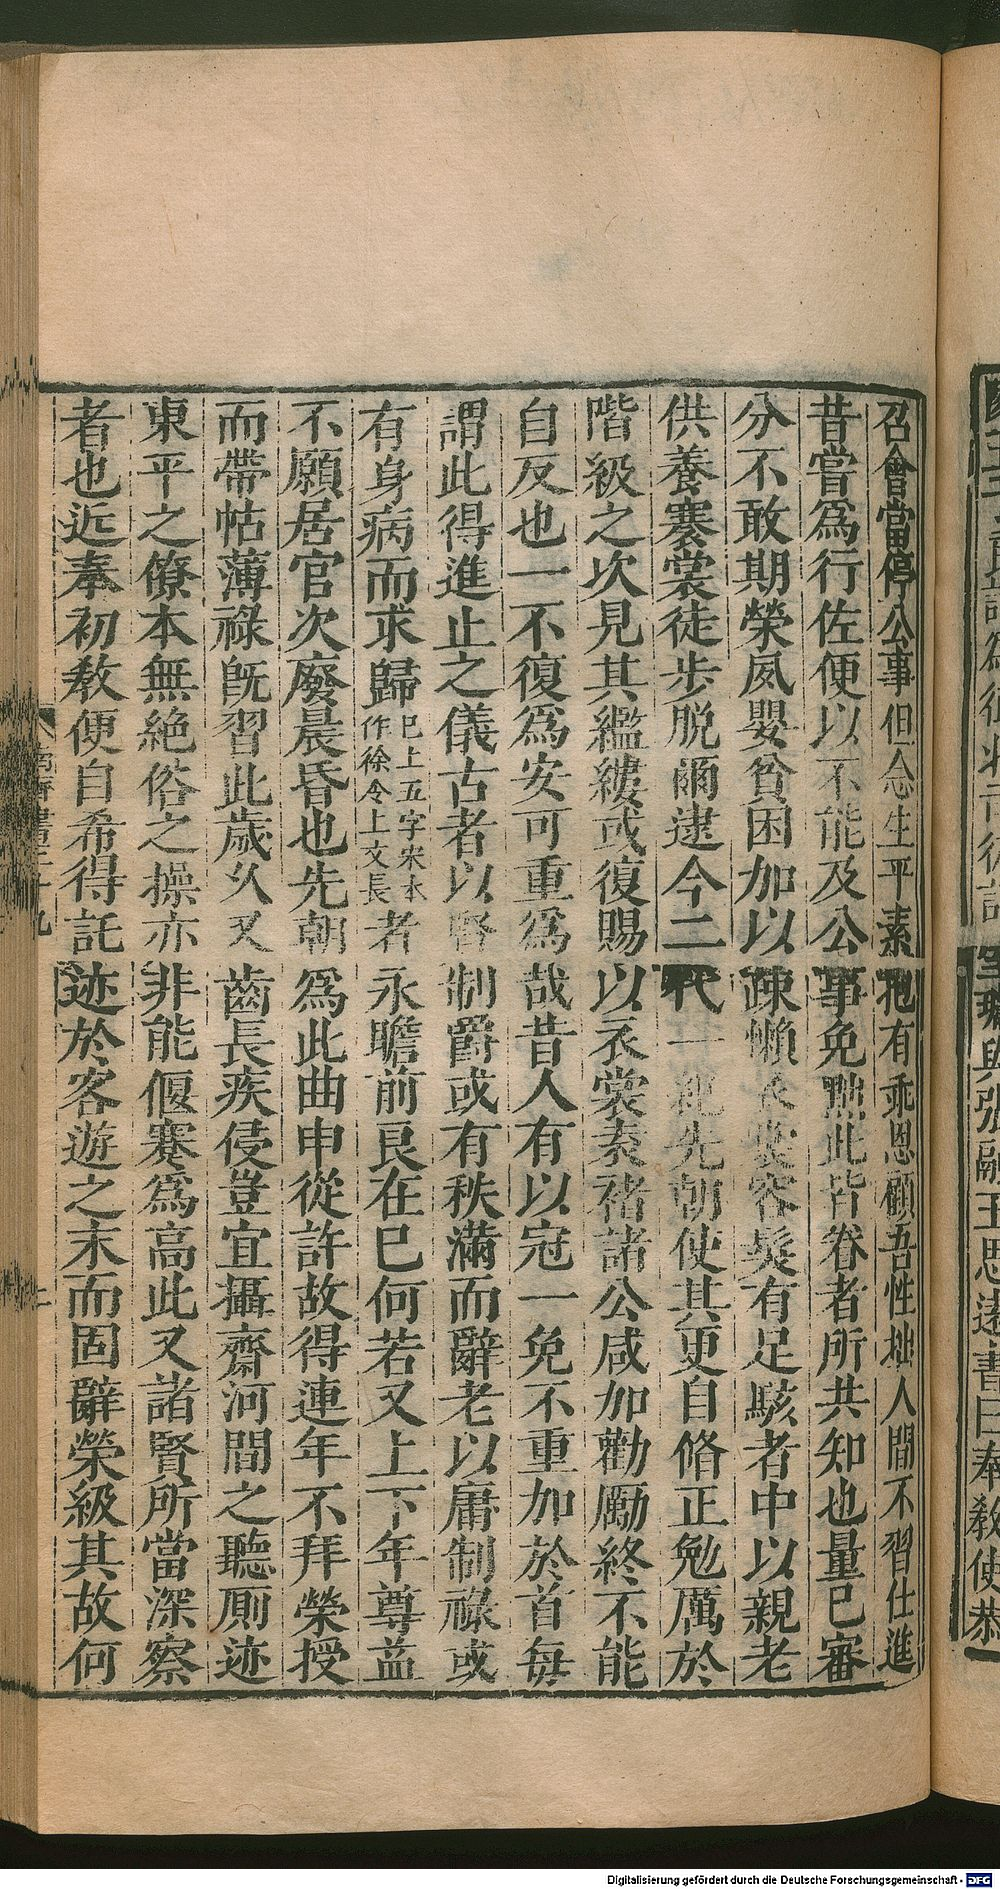 召會當停公事但念生平素抱有乖恩顧吾性拙人間不習仕進
昔嘗爲行佐便以不能及公事免黜此皆眷者所共知也量已審
分不敢期榮夙嬰貧困加以踈懶衣裳容髮有足駭者中以親老
供養褰裳徒步脱爾逮今二代一紀先朝使其更自脩正勉厲於
階級之次見其繿縷或復賜以衣裳袁褚諸公咸加勸勵終不能
自反也一不復爲安可重爲哉昔人有以冠一免不重加於首每
謂此得進止之儀古者以賢制爵或有秩滿而辭老以庸制祿或
有身病而求歸巳上五字宋本作徐令上文長者永瞻前良在已何若又上下年尊益
不願居官次廢晨昏也先朝爲此曲申從許故得連年不拜榮授
而帶帖薄祿旣習此歲久又齒長疾侵豈宜攝齋河間之聽厠迹
東平之僚本無絶俗之操亦非能偃蹇爲高此又諸賢所當深察
者也近奉初敎便自希得託迹於客遊之末而固辭榮級其故何
王思遠書曰奉敎使恭
Digitalisierung gefördert durch die Deutsche Forschungsgemeinschaft - DFG